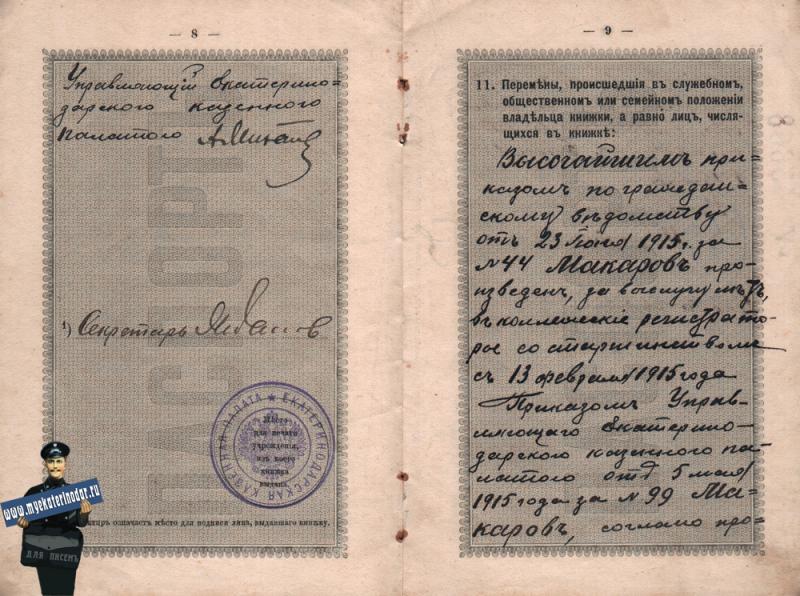 — 8 —
Управляющій Екатерино-
дарского казенного
палатою
1) Секретарь
ЕКАТЕРИНОДАРСКАЯ КАЗЕННАЯ ПАЛАТА
Мѣсто
для печати
учрежденія,
изъ коего
книжка
выдана.
означаетъ мѣсто для подписи лицъ, выдавшаго книжку.
ПАСПОРТЪ
www.myekaterinodar.ru
ДЛЯ ПИСЕМЪ
— 9 —
11. Перемѣны, происшедшія въ служебномъ,
общественномъ или семейномъ положеніи
владѣльца книжки, а равно лицъ, числя-
щихся въ книжкѣ:
Высочайшимъ при-
казомъ по граждан-
скому вѣдомству
отъ 23 Іюня 1915 г. за
№ 44 Макаровъ про-
изведенъ, за выслугу лѣтъ,
въ коллежскіе регистрато-
ры со старшинствомъ
съ 13 февраля 1915 года
Приказомъ Управ-
ляющаго Екатерино-
дарского казенного па-
латою отъ 5 мая
1915 года за № 99 Ма-
каровъ, согласно про-